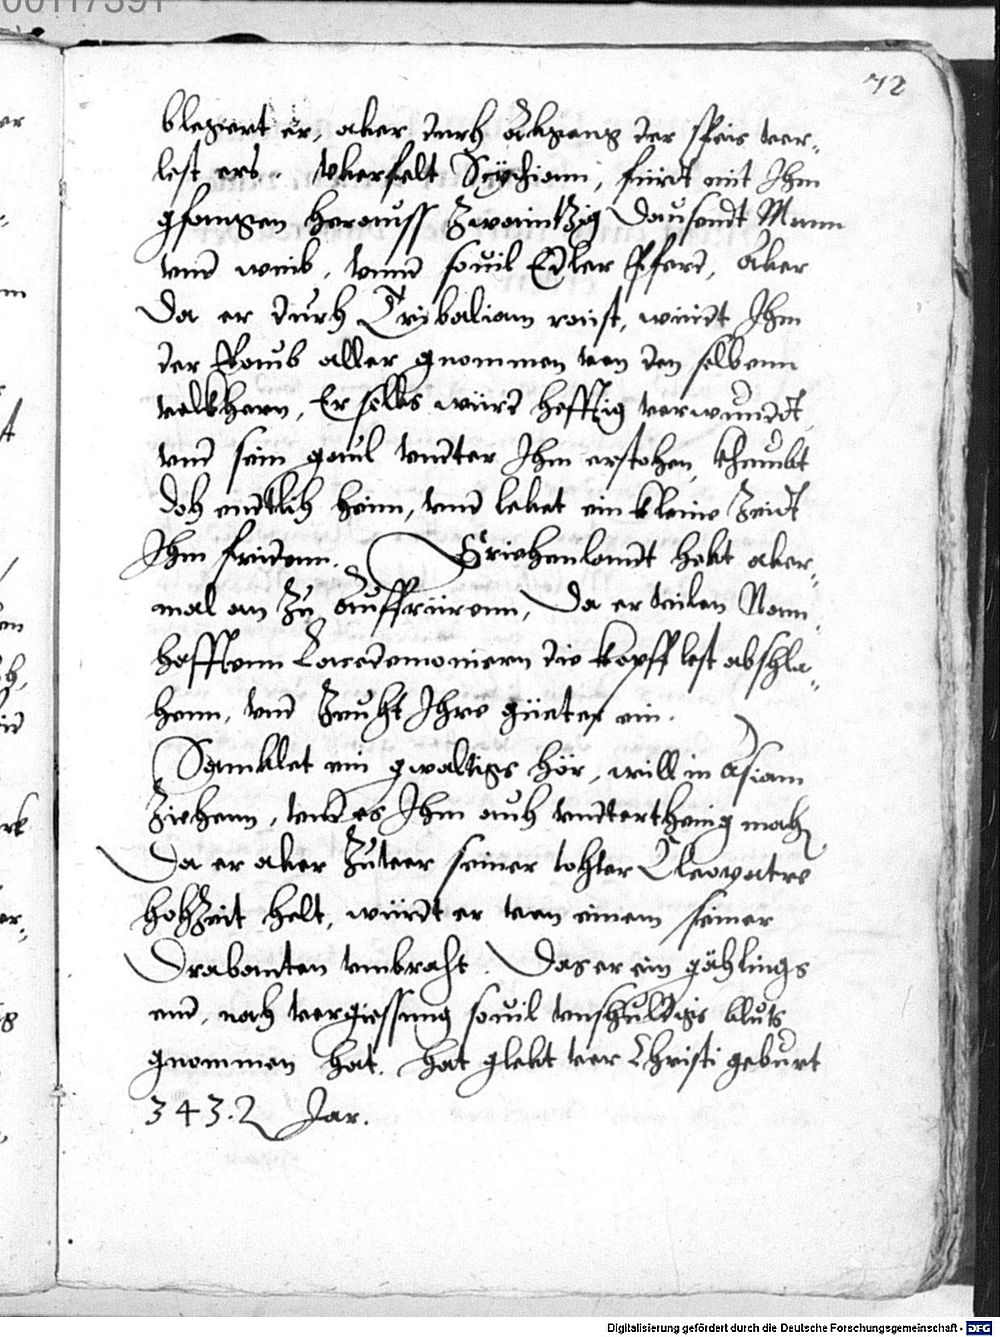 00117391
72
blegert er, aber durch abgang der speis ver¬
lest ers. Vberfelt Scythiam, füert mit Ihm
gfangen herauss Zwaintzig Dausendt Mann
vnd weib, vnnd souil Edler Pferd, aber
Da er durch Tribaliam raist, würdt Ihm
der Raub aller gnommen von den selbenn
volkhern, Er selbs würd hefftig verwundt,
vnd sein gaul vndter Ihm erstochen, khumbt
doch endtlich heim, vnd lebet ein kleine Zeidt
Ihm fridenn. Griechenlandt hebt aber¬
mal an zu auffrürenn, Da er vilen Nam¬
hafftenn Lacedemoniern die köpff lest abschla¬
henn, vnd Zeucht Ihre güeter ein.
Samblet ein gwaltigs hör, will in Asiam
Ziehenn, vnd es Ihm auch vndterthenig mach
Da er aber Zuuor seiner tochter Cleopatre
hochzeit helt, würdt er von einem seiner
Drabanten vmbracht. Das er ein gählings
end, nach vergiessung souil vnschuldigs bluts
gnommen hat. hat glebt vor Christi geburt
343.2 Jar.
Digitalisierung gefördert durch die Deutsche Forschungsgemeinschaft - DFG